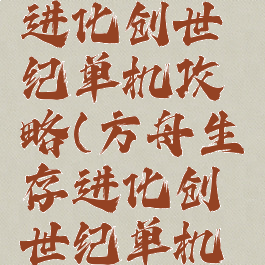 进化创世
纪单机攻
略(方舟生
存进化创
世纪单机